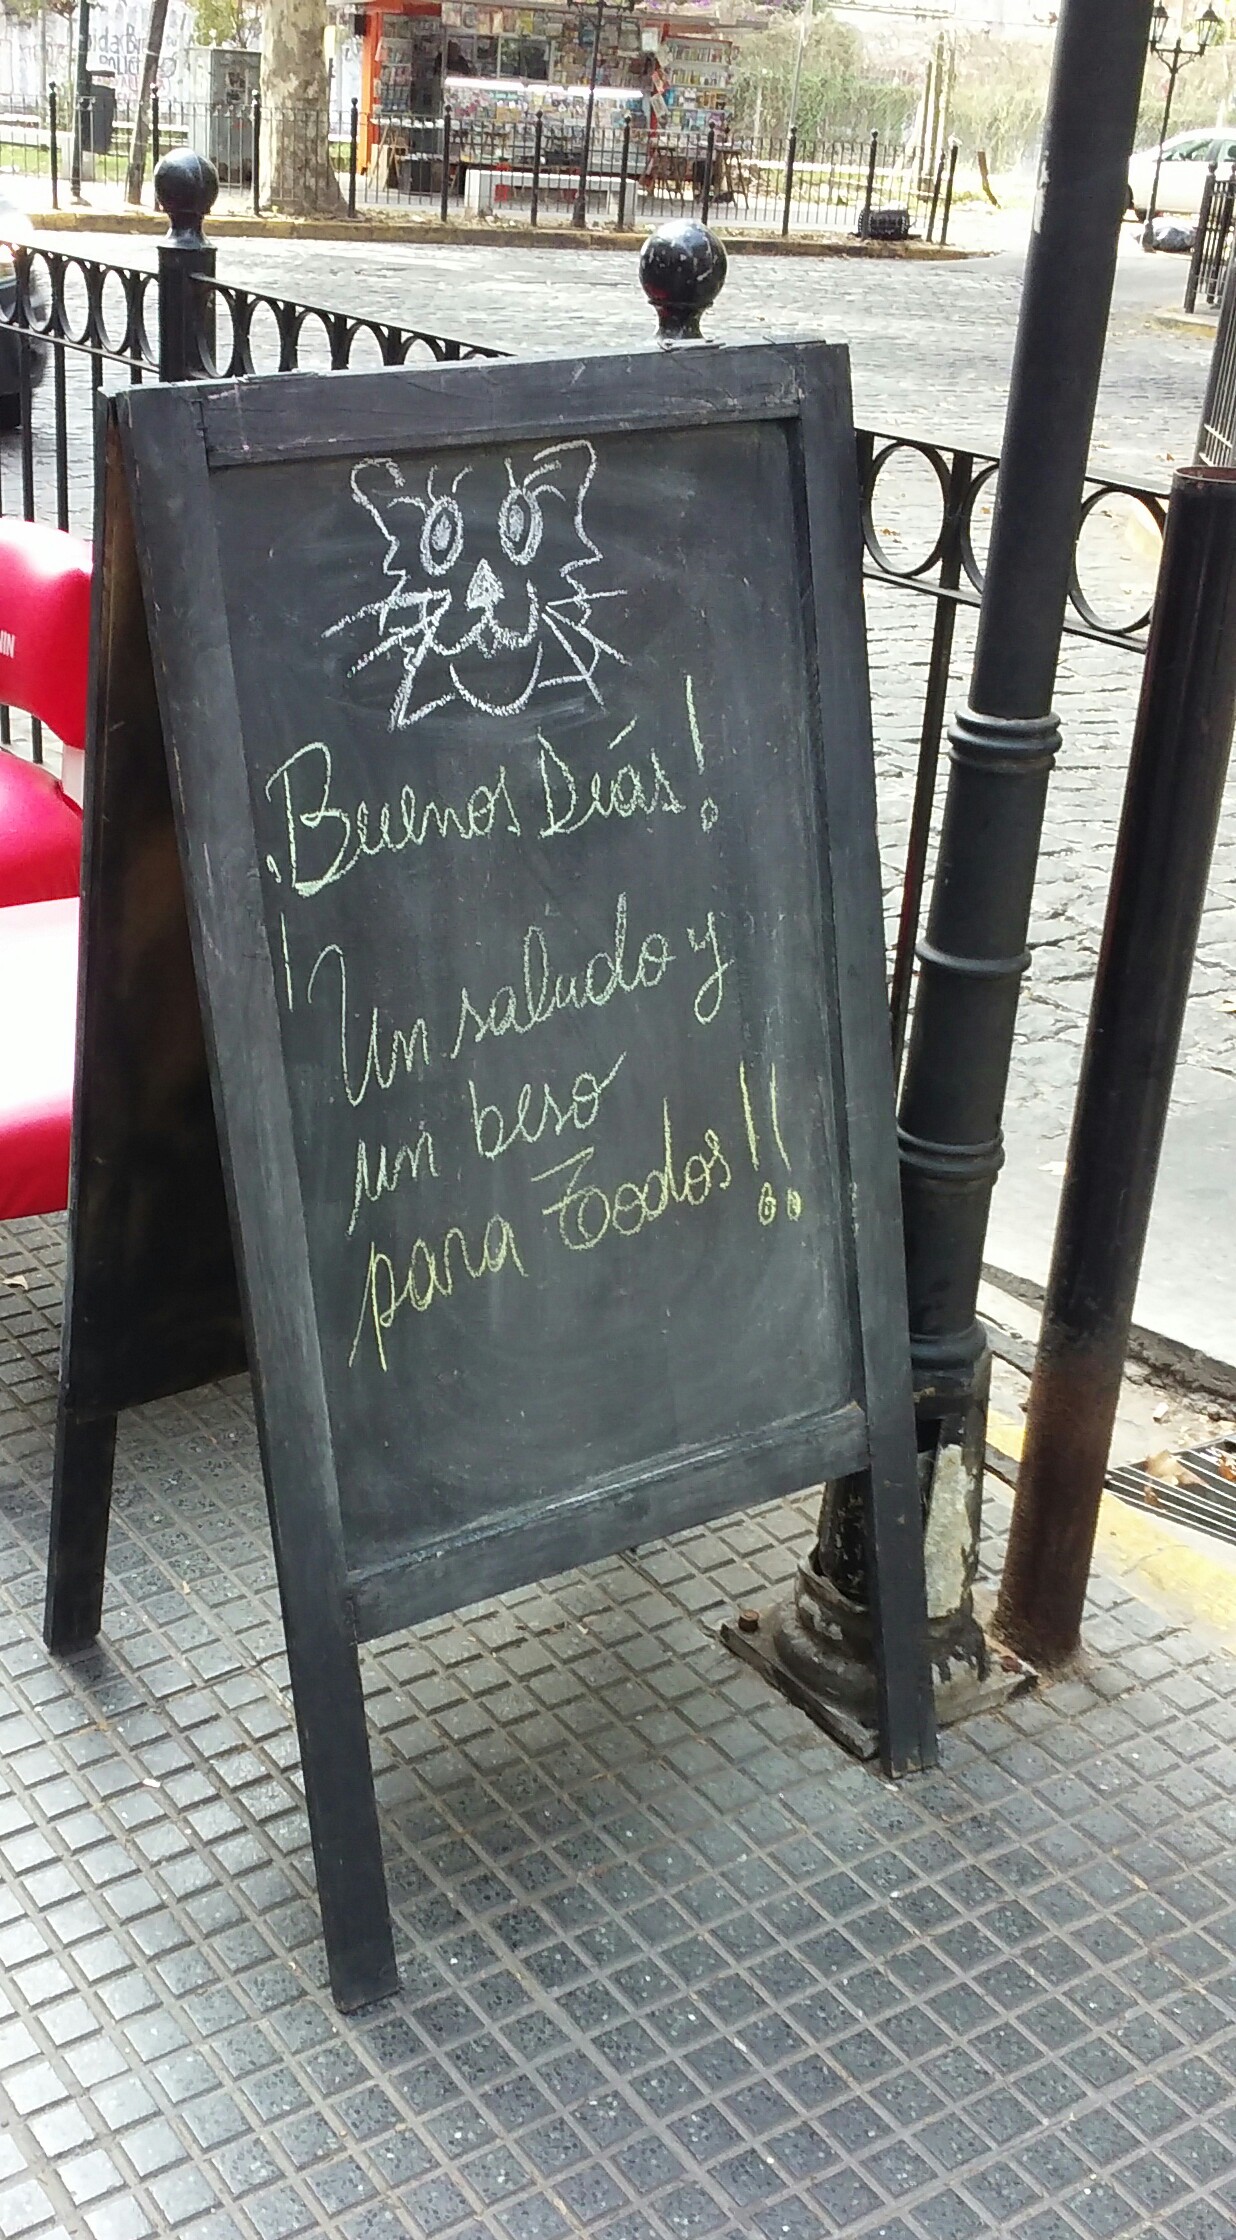 ¡Buenos Diás!
¡Un saludo y
un beso
para Todos!!